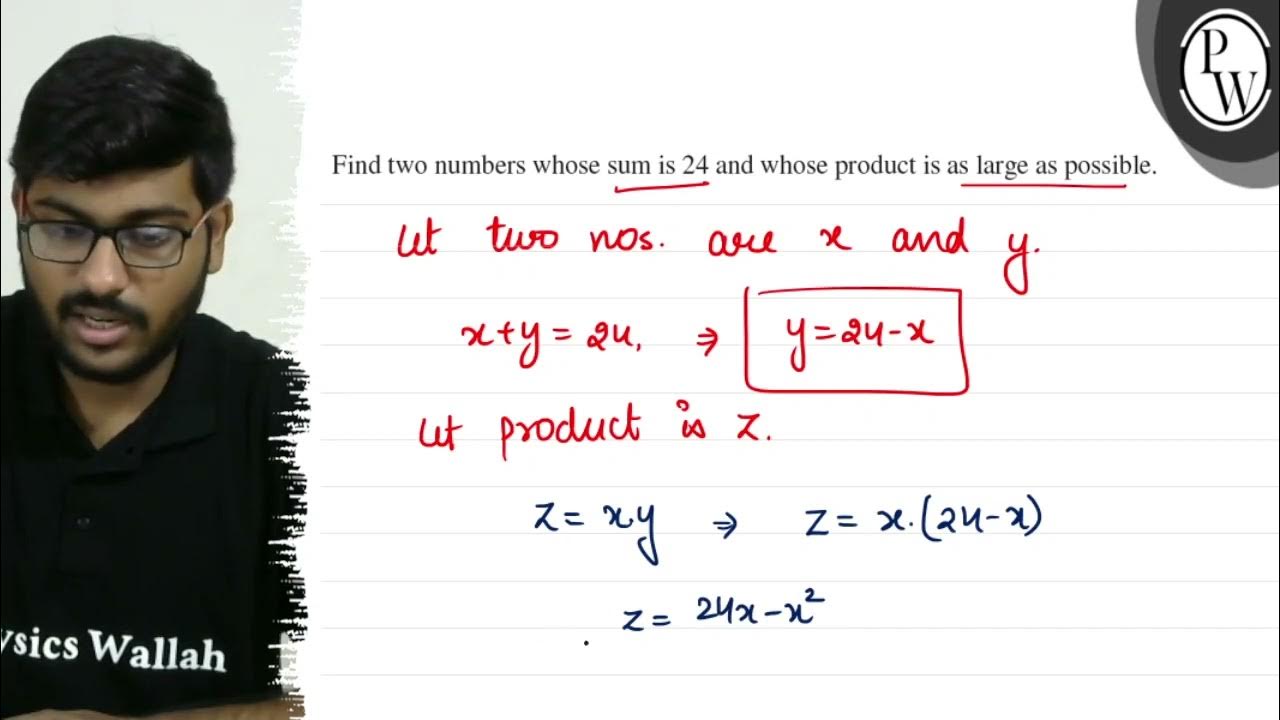 PW
Find two numbers whose sum is 24 and whose product is as large as possible.
let two nos. are x and y.
x+y = 24, ⇒ y = 24-x
let product is z.
z = x.y ⇒ z = x.(24-x)
z = 24x-x²
ysics Wallah